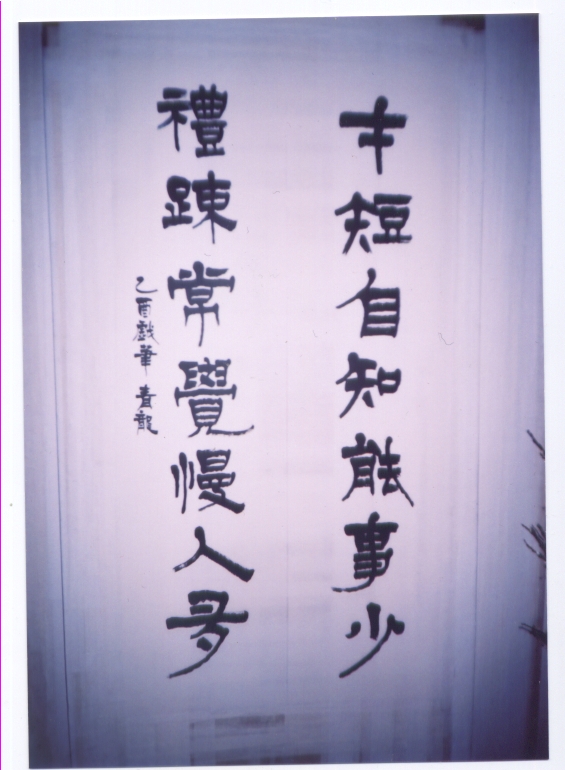 才短自知能事少
禮踈常覺慢人多
乙酉戲筆 青龍